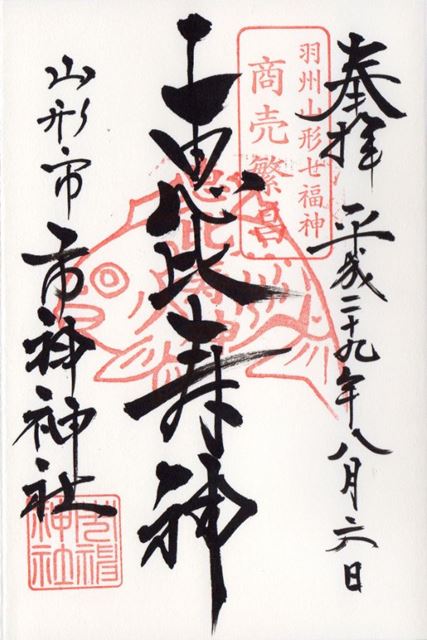 奉拝　平成二十九年八月六日
羽州山形七福神
商売繁昌
恵比寿神
山形市　市神神社
市神神社